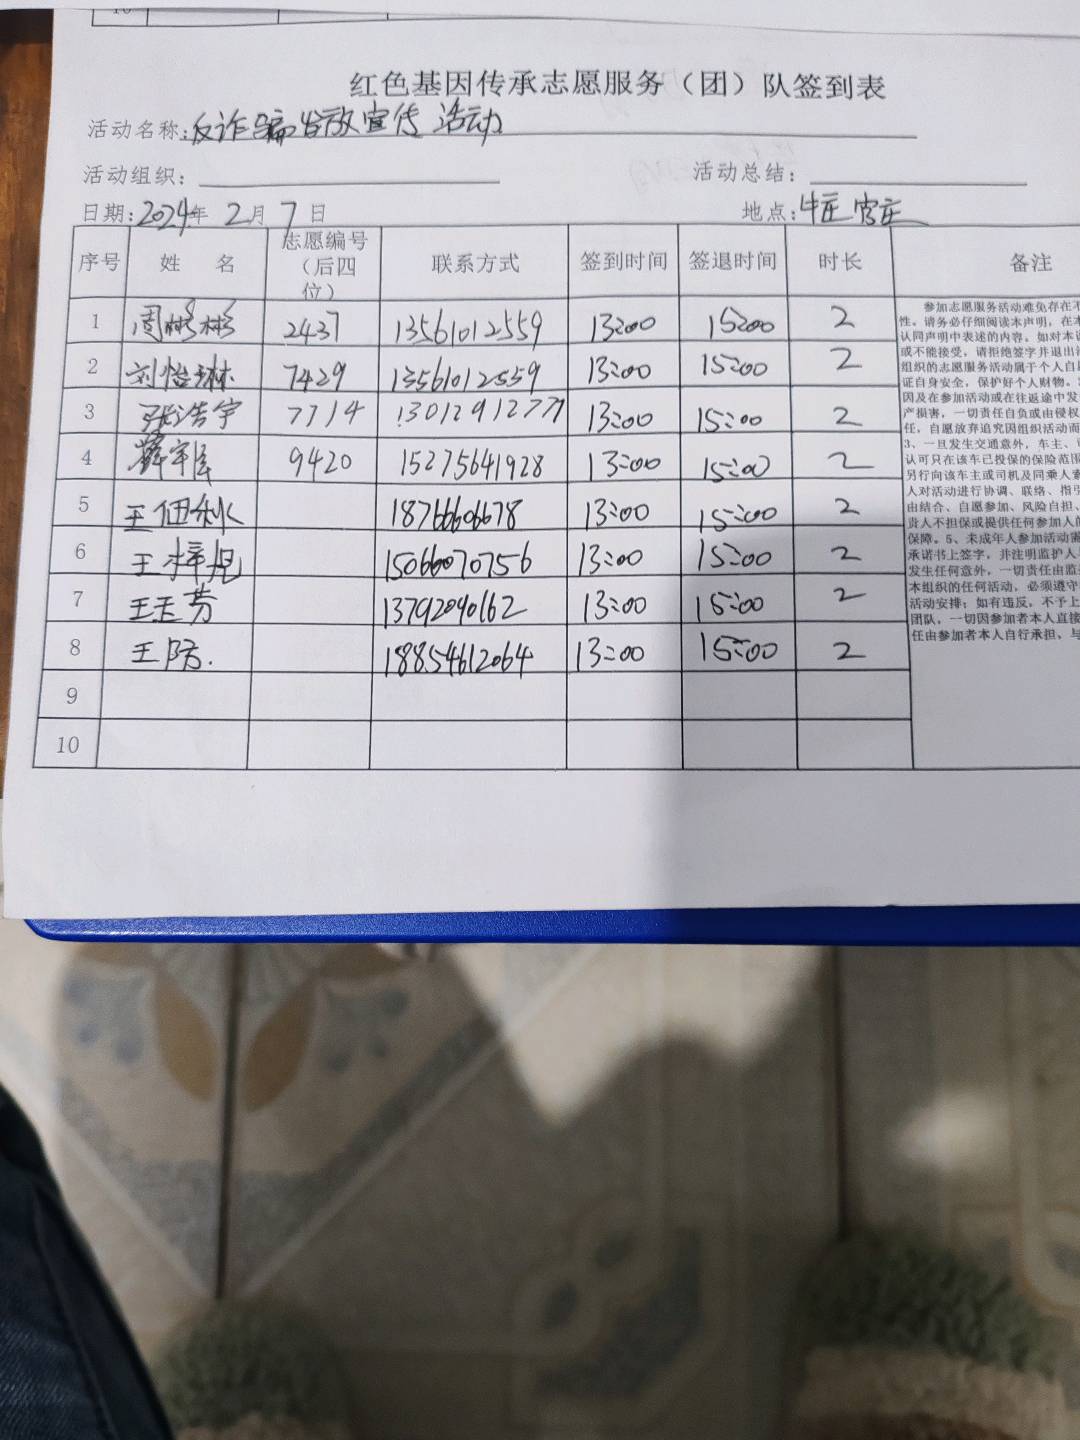 10
红色基因传承志愿服务（团）队签到表
活动名称：反诈骗发放宣传活动
活动组织： 活动总结：
日期：2024年 2月 7日 地点：牛庄官庄
序号 姓 名 志愿编号（后四位） 联系方式 签到时间 签退时间 时长 备注
1 周彬彬 2437 13561012559 13:00 15:00 2
2 刘怡琳 7429 13561012559 13:00 15:00 2
3 张浩宇 7714 13012912771 13:00 15:00 2
4 9420 15275641928 13:00 15:00 2
5 王 18766606678 13:00 15:00 2
6 王梓 15066070756 13:00 15:00 2
7 王玉芳 13792090162 13:00 15:00 2
8 王防. 18854612064 13:00 15:00 2
9
10
参加志愿服务活动难免存在不
性。请务必仔细阅读本声明，在本
认同声明中表述的内容。如对本
或不能接受，请拒绝签字并退出
组织的志愿服务活动属于个人自
证自身安全，保护好个人财物。
因及在参加活动或在往返途中发
产损害，一切责任自负或由侵权
任，自愿放弃追究因组织活动而
3、一旦发生交通意外，车主、
认可只在该车已投保的保险范围
另行向该车主或司机及同乘人索
人对活动进行协调、联络、指引
由结合、自愿参加、风险自担、
责人不担保或提供任何参加人的
保障。5、未成年人参加活动需
承诺书上签字，并注明监护人
发生任何意外，一切责任由监
本组织的任何活动，必须遵守
活动安排；如有违反，不予上
团队，一切因参加者本人直接
任由参加者本人自行承担，与